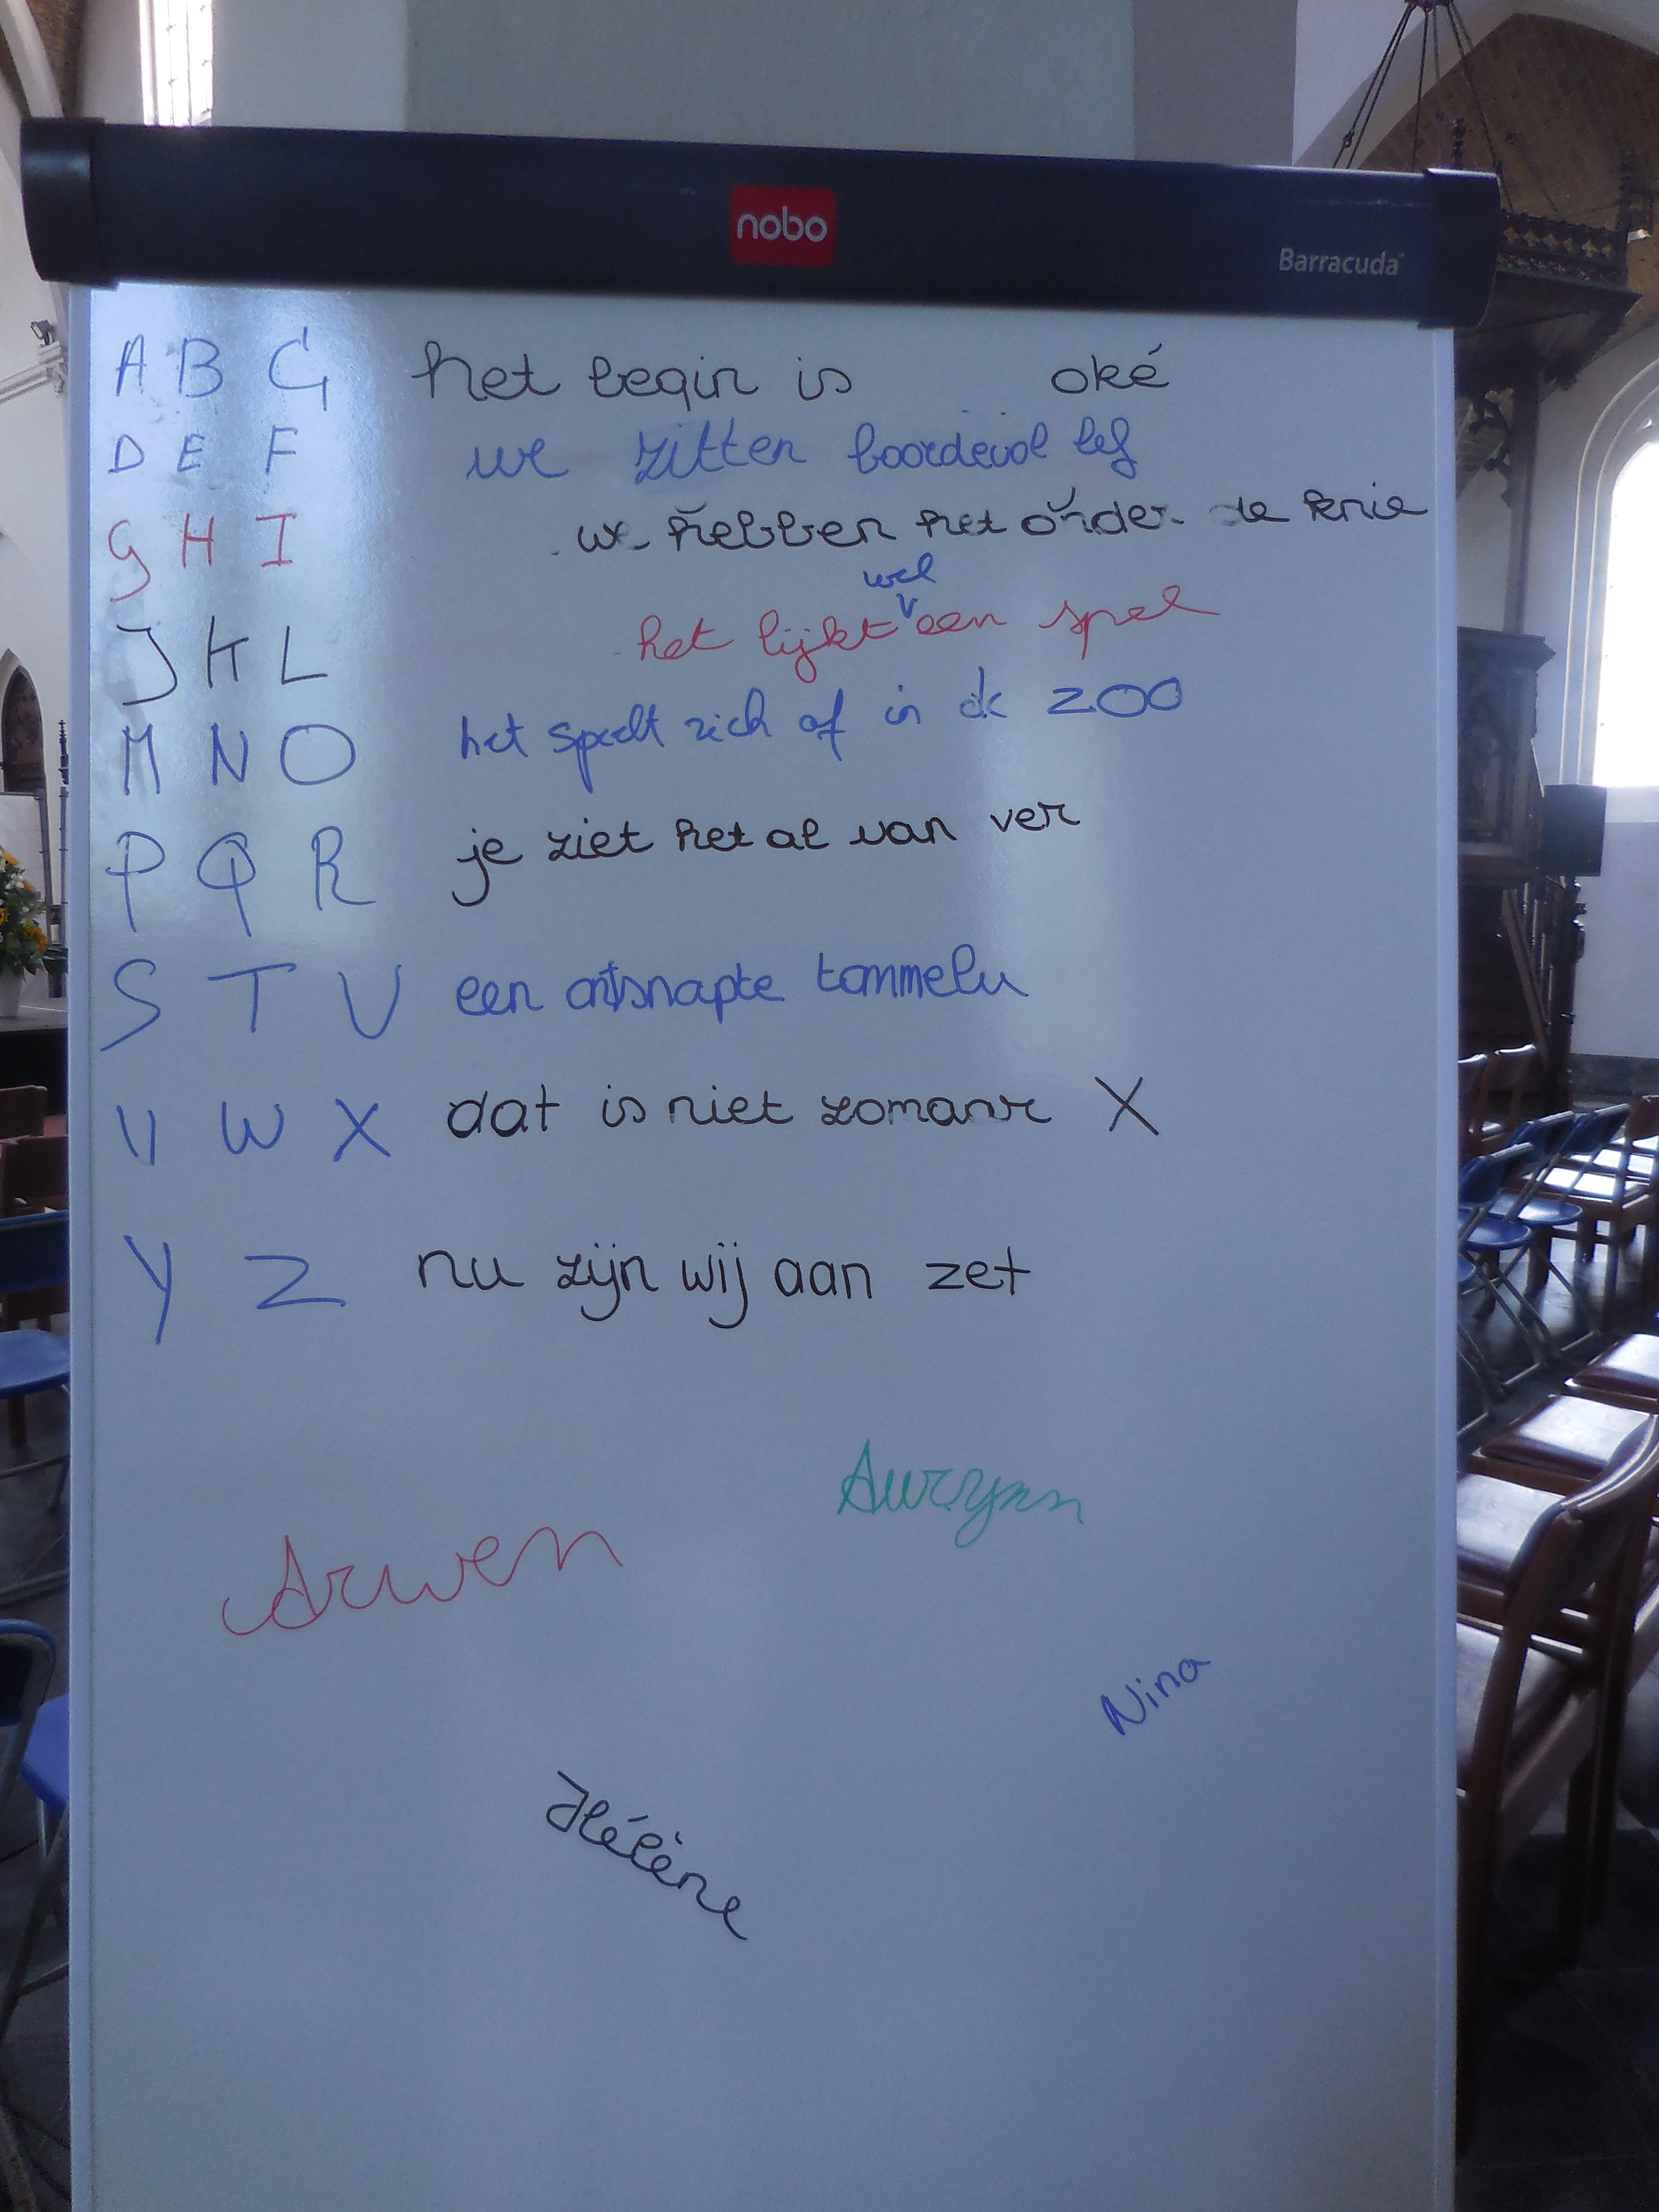 nobo
Barracuda
A B C het begin is oké
D E F we zitten boordevol lef
G H I we hebben het onder de knie
wel
J K L het lijkt een spel
M N O het speelt zich af in de zoo
P Q R je ziet het al van ver
S T U een ontsnapte
V W X dat is niet zomaar X
Y Z nu zijn wij aan zet
Arwen
Nina
Hélène